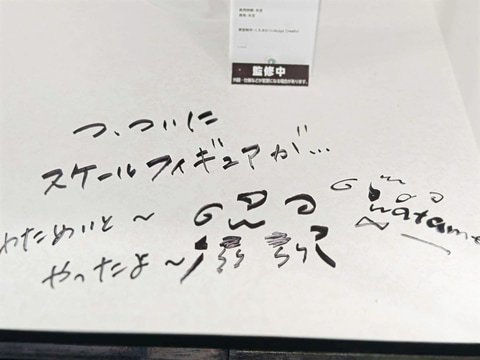 監修中
つ、ついに
スケールフィギュアが...
わためいと～
やったよ～
watame